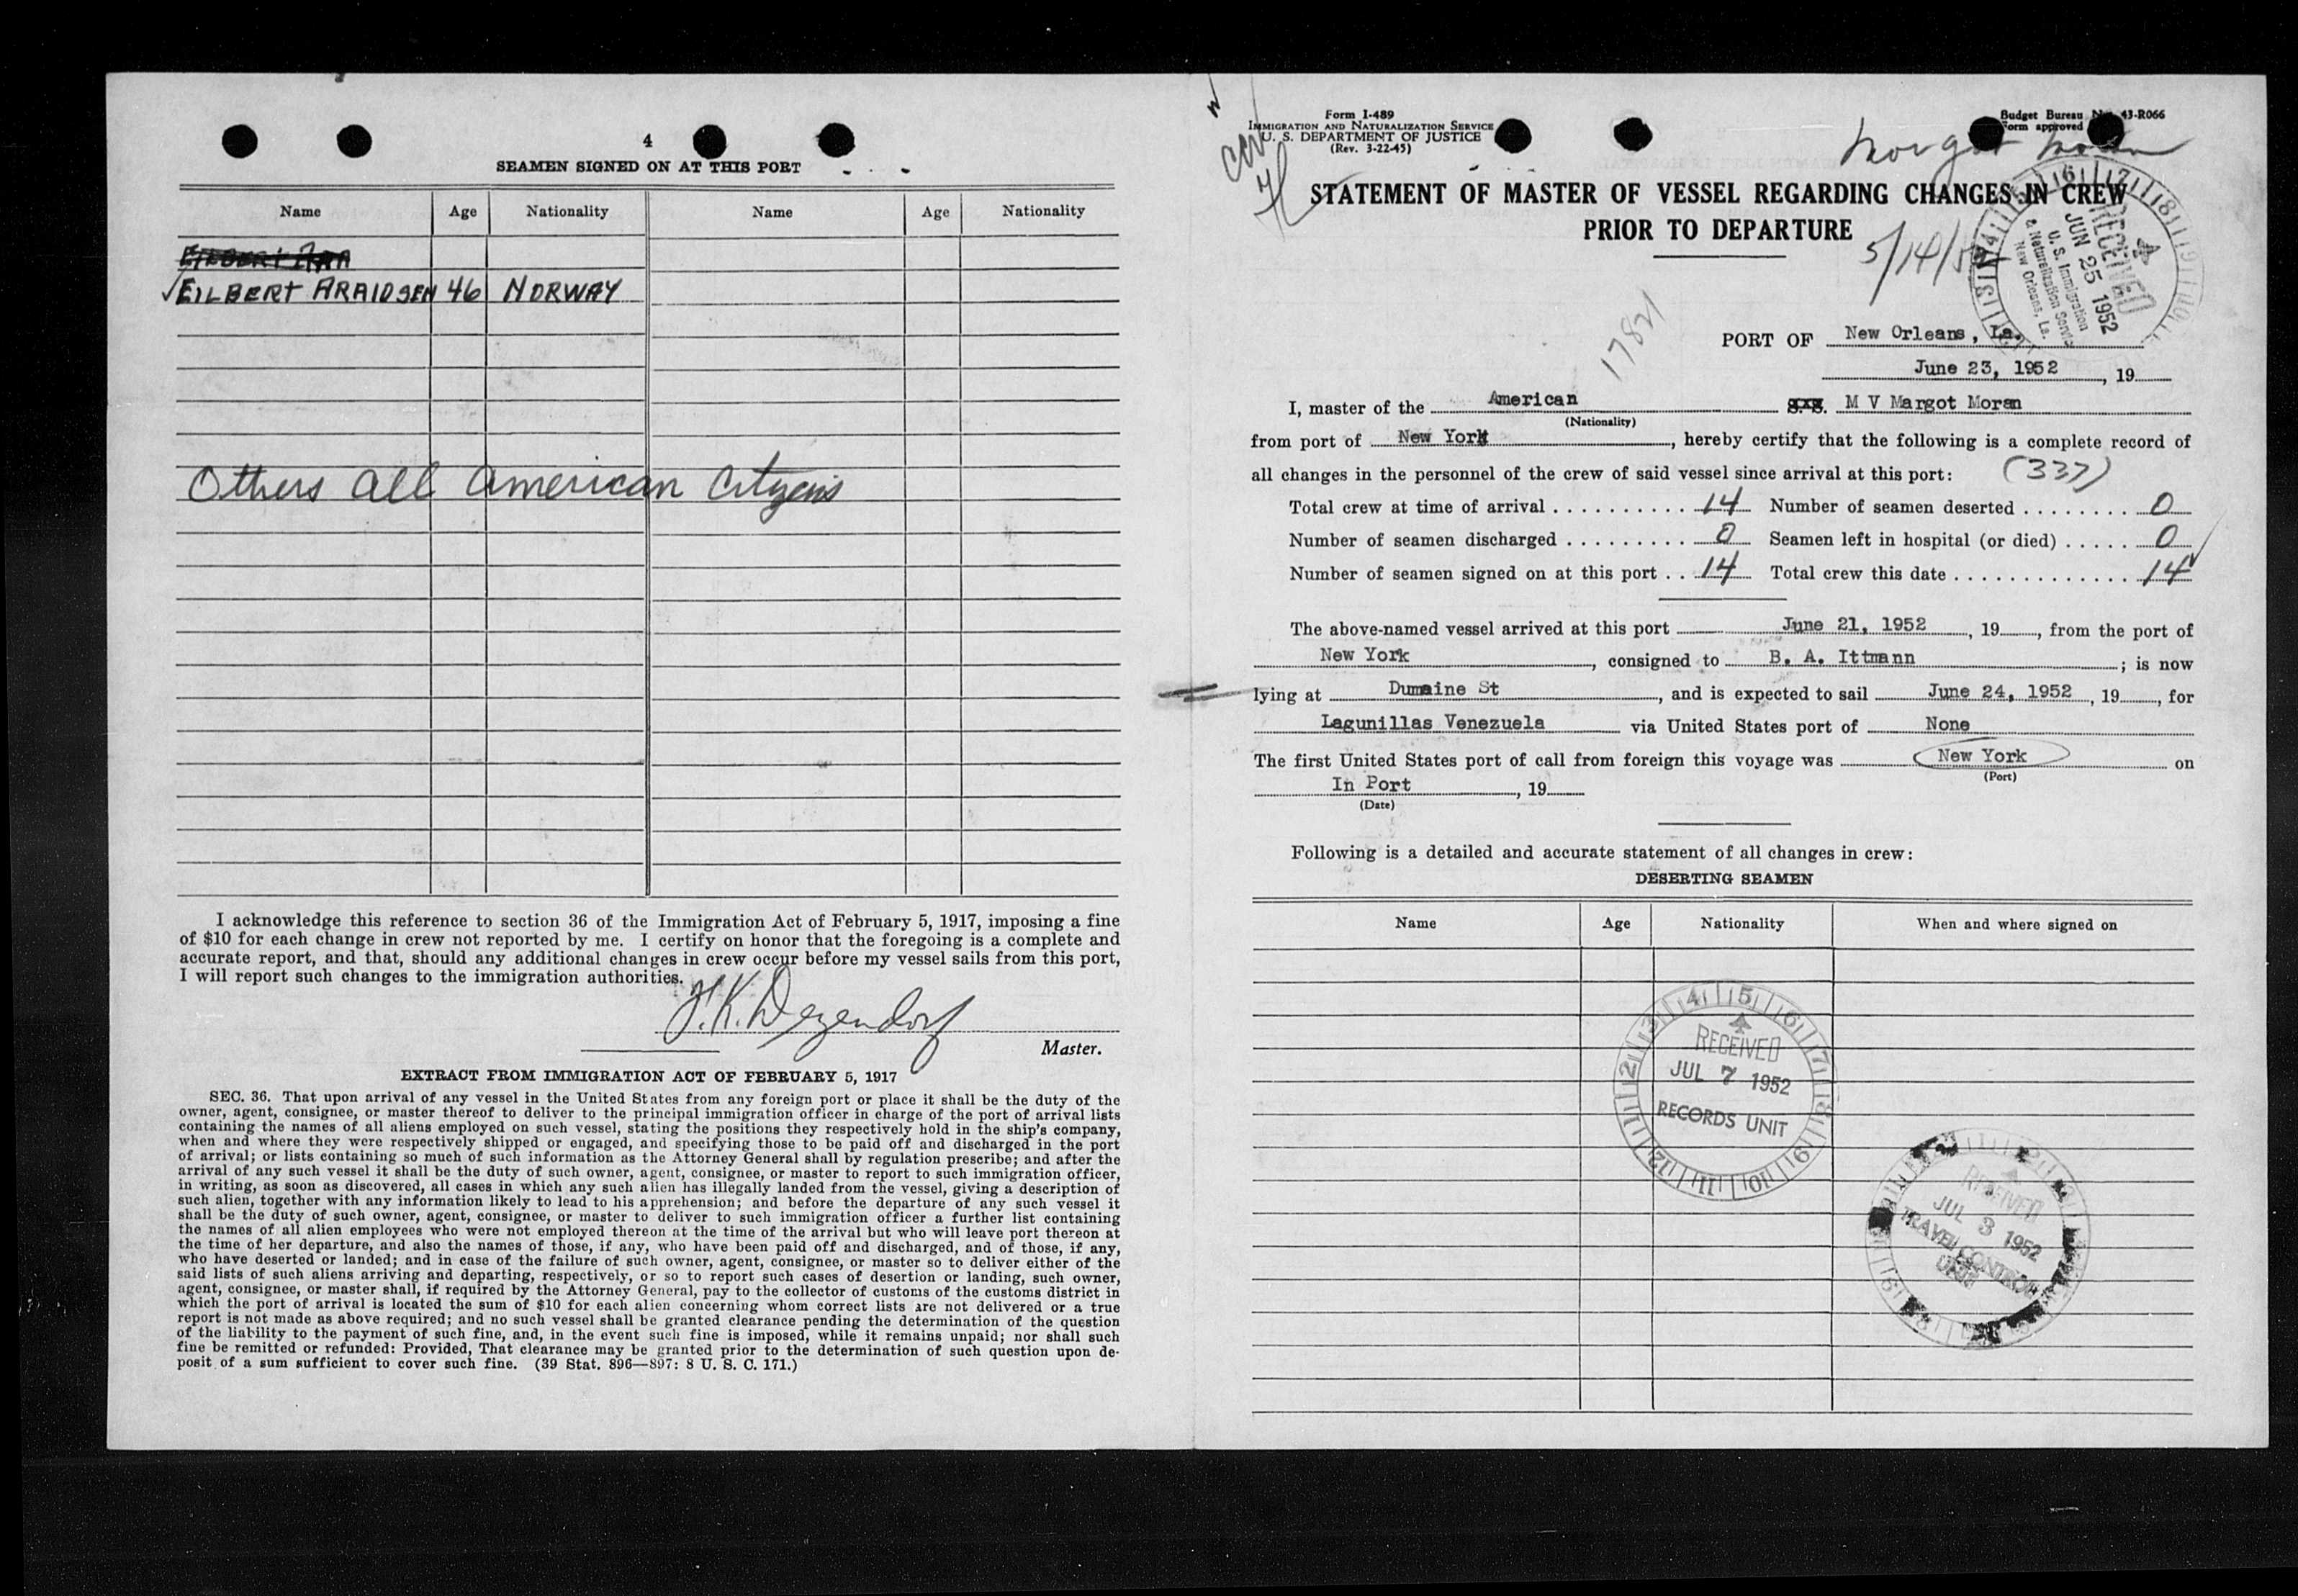 4
SEAMEN SIGNED ON AT THIS PORT
Name Age Nationality Name Age Nationality
EILBERT ARAIDSEN 46 NORWAY
Others all American Citizens
I acknowledge this reference to section 36 of the Immigration Act of February 5, 1917, imposing a fine
of $10 for each change in crew not reported by me. I certify on honor that the foregoing is a complete and
accurate report, and that, should any additional changes in crew occur before my vessel sails from this port,
I will report such changes to the immigration authorities.
J. K. Dezendorf
Master.
EXTRACT FROM IMMIGRATION ACT OF FEBRUARY 5, 1917
SEC. 36. That upon arrival of any vessel in the United States from any foreign port or place it shall be the duty of the
owner, agent, consignee, or master thereof to deliver to the principal immigration officer in charge of the port of arrival lists
containing the names of all aliens employed on such vessel, stating the positions they respectively hold in the ship's company,
when and where they were respectively shipped or engaged, and specifying those to be paid off and discharged in the port
of arrival; or lists containing so much of such information as the Attorney General shall by regulation prescribe; and after the
arrival of any such vessel it shall be the duty of such owner, agent, consignee, or master to report to such immigration officer,
in writing, as soon as discovered, all cases in which any such alien has illegally landed from the vessel, giving a description of
such alien, together with any information likely to lead to his apprehension; and before the departure of any such vessel it
shall be the duty of such owner, agent, consignee, or master to deliver to such immigration officer a further list containing
the names of all alien employees who were not employed thereon at the time of the arrival but who will leave port thereon at
the time of her departure, and also the names of those, if any, who have been paid off and discharged, and of those, if any,
who have deserted or landed; and in case of the failure of such owner, agent, consignee, or master so to deliver either of the
said lists of such aliens arriving and departing, respectively, or so to report such cases of desertion or landing, such owner,
agent, consignee, or master shall, if required by the Attorney General, pay to the collector of customs of the customs district in
which the port of arrival is located the sum of $10 for each alien concerning whom correct lists are not delivered or a true
report is not made as above required; and no such vessel shall be granted clearance pending the determination of the question
of the liability to the payment of such fine, and, in the event such fine is imposed, while it remains unpaid; nor shall such
fine be remitted or refunded: Provided, That clearance may be granted prior to the determination of such question upon de-
posit of a sum sufficient to cover such fine. (39 Stat. 896—897: 8 U. S. C. 171.)
Form I-489
IMMIGRATION AND NATURALIZATION SERVICE
U. S. DEPARTMENT OF JUSTICE
(Rev. 3-22-45)
Budget Bureau No. 43-R066
Form approved
Margot Moran
STATEMENT OF MASTER OF VESSEL REGARDING CHANGES IN CREW
PRIOR TO DEPARTURE
5/14/5
RECEIVED
JUN 25 1952
U. S. Immigration
& Naturalization Service
New Orleans, La.
17821
PORT OF New Orleans, La.
June 23, 1952, 19
I, master of the American M V Margot Moran
(Nationality)
from port of New York, hereby certify that the following is a complete record of
all changes in the personnel of the crew of said vessel since arrival at this port: (337)
Total crew at time of arrival . . . . . . . . . . 14 Number of seamen deserted . . . . . . . . 0
Number of seamen discharged . . . . . . . . . 0 Seamen left in hospital (or died) . . . . . 0
Number of seamen signed on at this port . . 14 Total crew this date . . . . . . . . . . . . . . 14
The above-named vessel arrived at this port June 21, 1952, 19, from the port of
New York, consigned to B. A. Ittmann; is now
lying at Dumaine St, and is expected to sail June 24, 1952, 19, for
Lagunillas Venezuela via United States port of None
The first United States port of call from foreign this voyage was New York on
(Port)
In Port, 19
(Date)
Following is a detailed and accurate statement of all changes in crew:
DESERTING SEAMEN
Name Age Nationality When and where signed on
RECEIVED
JUL 7 1952
RECORDS UNIT
RECEIVED
JUL 3 1952
TRAVEL CONTROL
UNIT